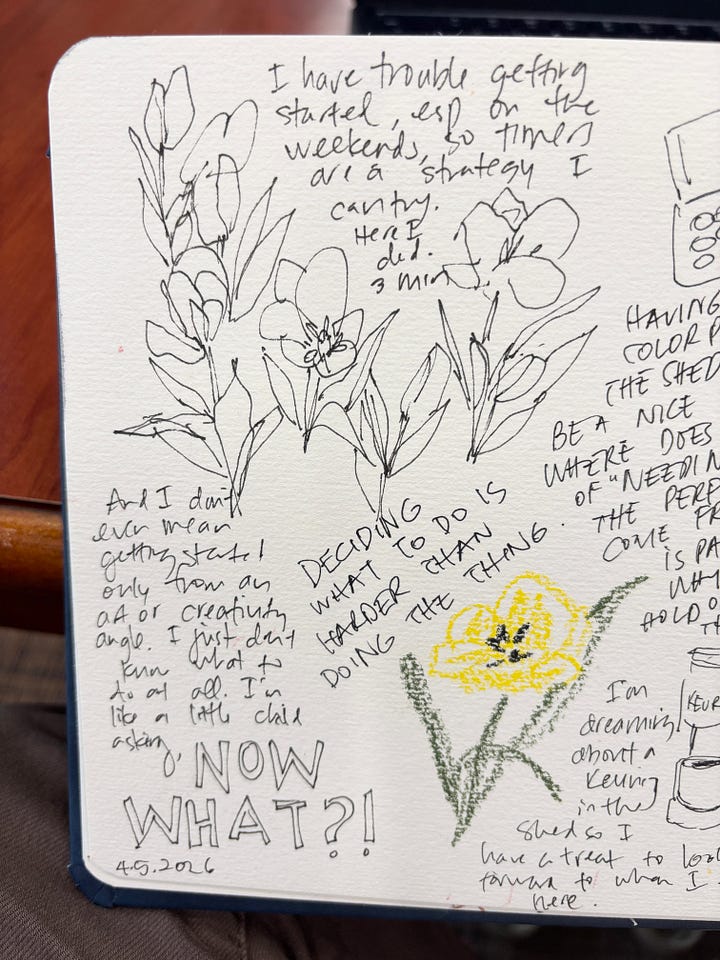 I have trouble getting
started, esp on the
weekends, so timers
are a strategy I
can try.
Here I
did.
3 min
And I don't
even mean
getting started
only from an
art or creativity
angle. I just don't
know what to
do at all. I'm
like a little child
asking,
NOW
WHAT?!
4.5.2026
DECIDING
WHAT TO DO IS
HARDER THAN
DOING THE THING.
HAVING
COLOR
THE SHED
BE A NICE
WHERE DOES
OF "NEEDIN
THE PERF
COME FR
IS PA
WHY
HOLD O
TH
I'm
dreaming
about a
Keurig
in the
shed so I
have a treat to look
forward to when I
here.
KEUR